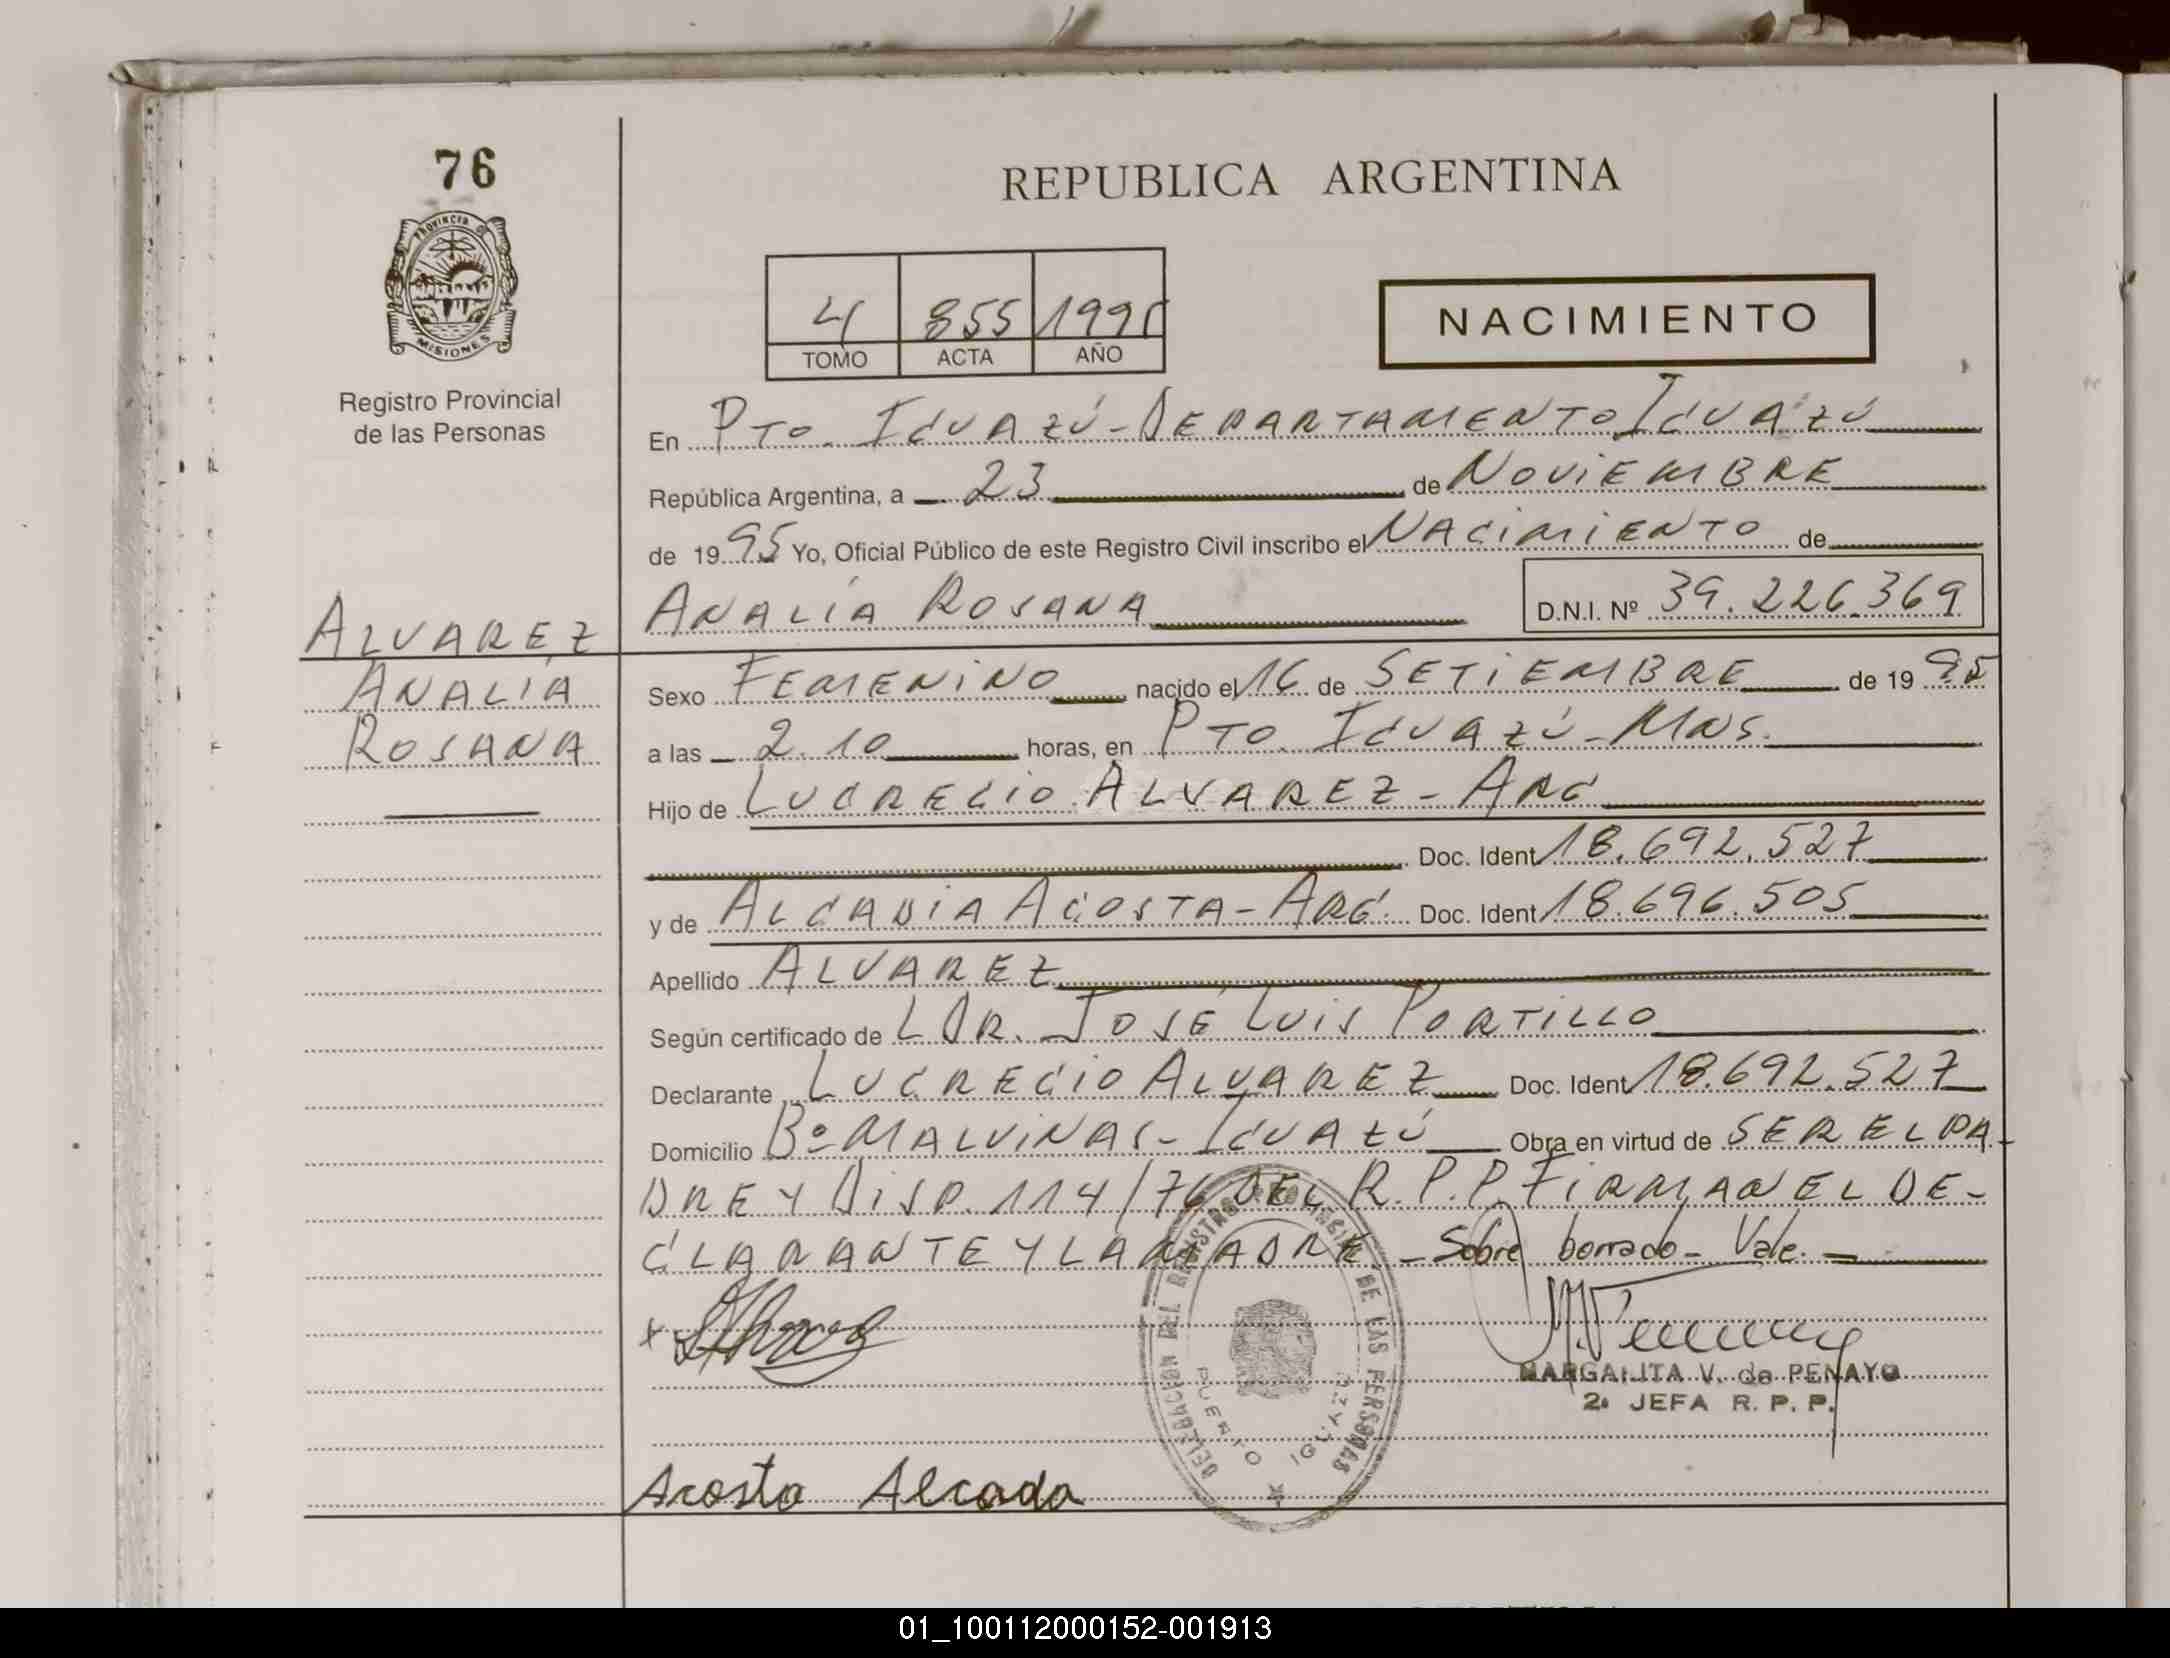 76
PROVINCIA DE
MISIONES
Registro Provincial
de las Personas
REPUBLICA ARGENTINA
4 855 1995
TOMO ACTA AÑO
NACIMIENTO
En PTO. IGUAZÚ - DEPARTAMENTO IGUAZÚ
República Argentina, a 23 de NOVIEMBRE
de 1995 Yo, Oficial Público de este Registro Civil inscribo el NACIMIENTO de
ANALÍA ROSANA D.N.I. Nº 39.226.369
ALVAREZ
ANALIA
ROSANA
Sexo FEMENINO nacido el 16 de SETIEMBRE de 1995
a las 2.10 horas, en PTO. IGUAZÚ - MNS.
Hijo de LUCRECIO ALVAREZ - ARG
Doc. Ident 18.692.527
y de ALCADIA ACOSTA - ARG. Doc. Ident 18.696.505
Apellido ALVAREZ
Según certificado de L DR. JOSÉ LUIS PORTILLO
Declarante LUCRECIO ALVAREZ Doc. Ident 18.692.527
Domicilio Bº MALVINAS - IGUAZÚ Obra en virtud de SER EL PA-
DRE Y DISP. 114/76 DEL R.P.P. FIRMAN EL DE-
CLARANTE Y LA MADRE - Sobre borrado - Vale.
DELEGACION DEL REGISTRO PROVINCIAL DE LAS PERSONAS
PUERTO IGUAZU
MARGARITA V. de PENAYO
2ª JEFA R. P. P.
Acosta Alcada
01_100112000152-001913